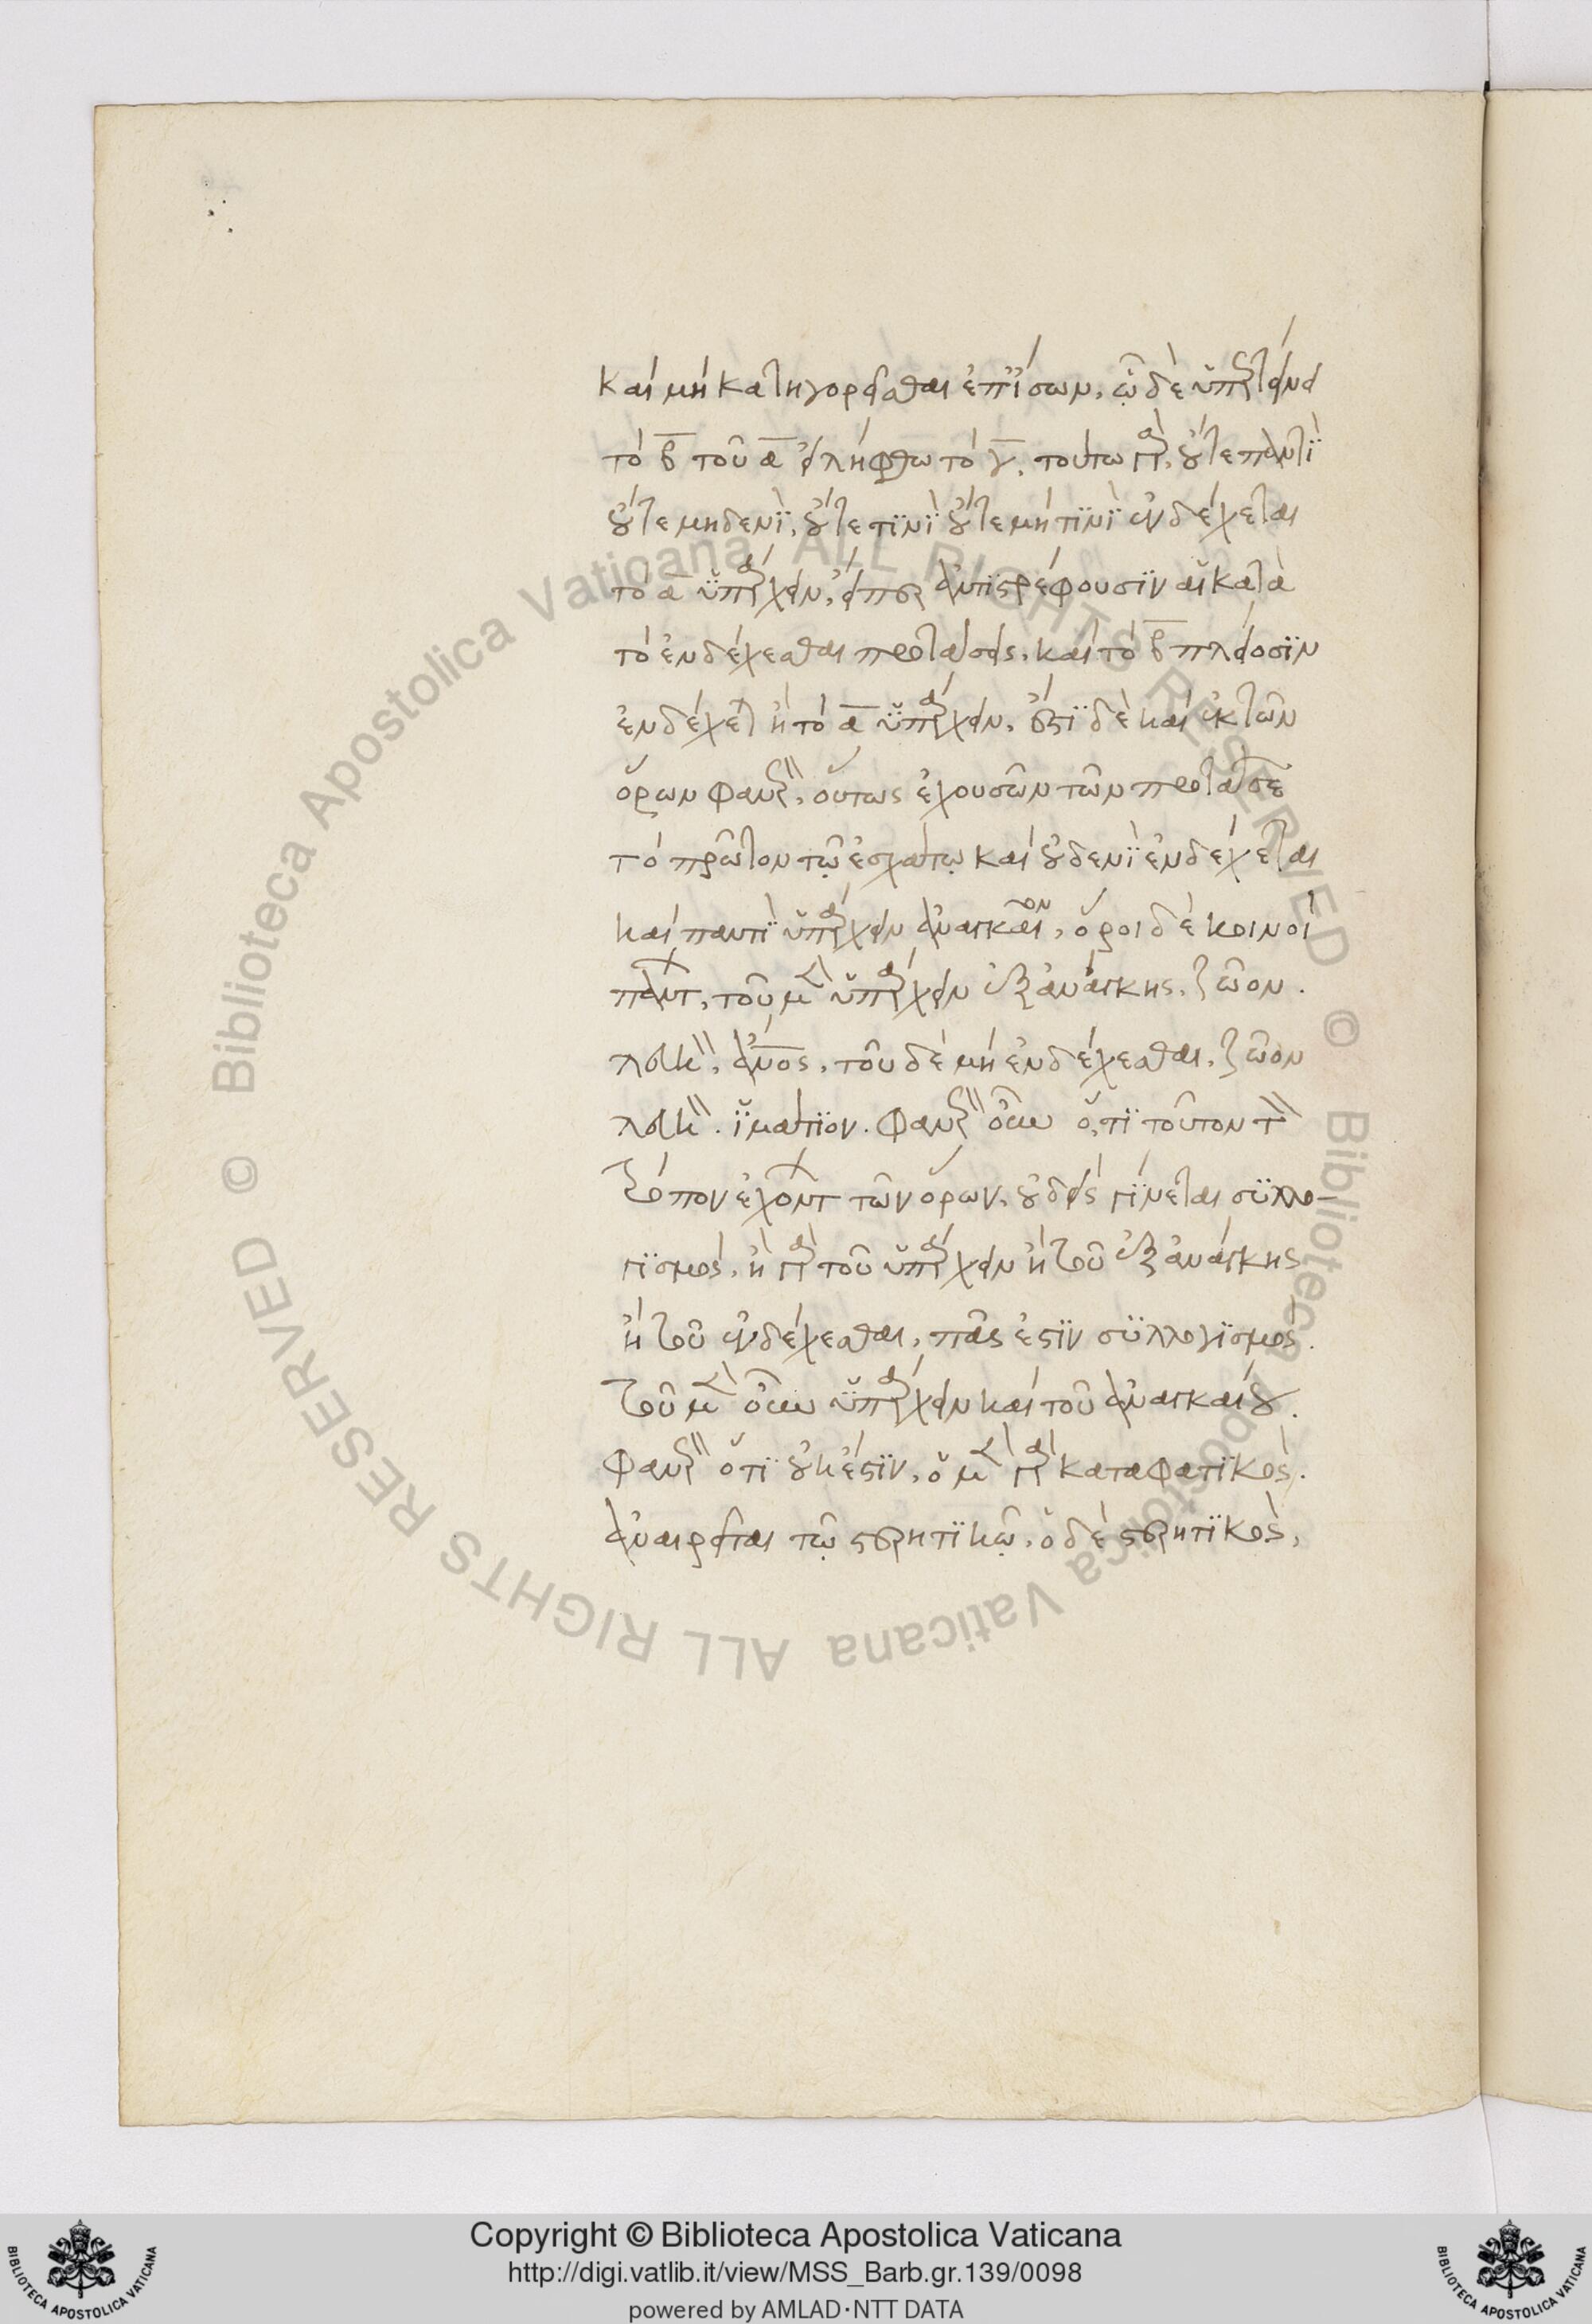 καὶ μὴ κατηγορεῖσθαι ἐπ' ἴσων, ᾧ δὲ ὑπερτείνει
τὸ β̅ τοῦ α̅ εἰλήφθω τὸ γ̅. τούτω γὰρ, οὔτε παντὶ
οὔτε μηδενὶ, οὔτε τινὶ οὔτε μή τινι ἐνδέχεται
τὸ α̅ ὑπάρχειν, εἴπερ ἀντιστρέφουσιν αἱ κατὰ
τὸ ἐνδέχεσθαι προτάσεις, καὶ τὸ β̅ πλείοσιν
ἐνδέχετ ἢ τὸ α̅ ὑπάρχειν. ἔτι δὲ καὶ ἐκ τῶν
ὅρων φανερ, οὕτως ἐχουσῶν τῶν προτάσε
τὸ πρῶτον τῷ ἐσχάτῳ καὶ οὐδενὶ ἐνδέχεται
καὶ παντὶ ὑπάρχειν ἀναγκαῖον, ὅροι δὲ κοινοὶ
πάντ, τοῦ μὲν ὑπάρχειν ἐξ ἀνάγκης, ζῶον.
λευκ, ἄνος, τοῦ δὲ μὴ ἐνδέχεσθαι, ζῶον
λευκ. ἱμάτιον. φανερ οὖν ὅτι τοῦτον τ
τρόπον ἐχόντ τῶν ὅρων, οὐδεὶς γίνεται συλλο-
γισμός, ἢ γὰρ τοῦ ὑπάρχειν ἢ τοῦ ἐξ ἀνάγκης
ἢ τοῦ ἐνδέχεσθαι, πᾶς ἐστὶν συλλογισμός.
τοῦ μὲν οὖν ὑπάρχειν καὶ τοῦ ἀναγκαίου.
φανερ ὅτι οὐκ ἔστιν, ὁ μὲν γὰρ καταφατικὸς.
ἀναιρεῖται τῷ στερητικῷ, ὁ δὲ στερητικὸς,
Copyright © Biblioteca Apostolica Vaticana
http://digi.vatlib.it/view/MSS_Barb.gr.139/0098
powered by AMLAD·NTT DATA
BIBLIOTECA APOSTOLICA VATICANA
BIBLIOTECA APOSTOLICA VATICANA
© Biblioteca Apostolica Vaticana ALL RIGHTS RESERVED
© Biblioteca Apostolica Vaticana ALL RIGHTS RESERVED